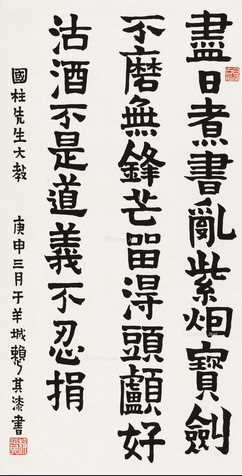 盡日煮書亂紫烟寶劍
不磨無鋒芒留淂頭顱好
沽酒不是道義不忍捐
國柱先生大教 庚申三月于羊城賴少其漆書